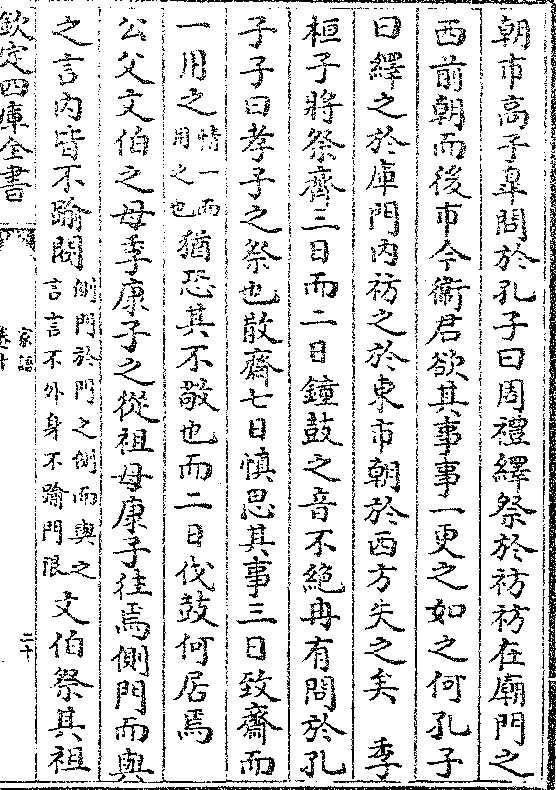 朝市高子臯問於孔子曰周禮繹祭於祊祊在廟門之
西前朝而後市今衛君欲其事事一更之如之何孔子
曰繹之於庫門内祊之於東市朝於西方失之矣 季
桓子將祭齊三日而二日鐘鼓之音不絶冉有問於孔
子子曰孝子之祭也散齋七日慎思其事三日致齋而
一用之情一而用之也猶恐其不敬也而二日伐鼓何居焉
公父文伯之母季康子之從祖母康子往焉側門而與
之言内皆不踰閾側門於門之側而與之言言不外身不踰門限文伯祭其祖
欽定四庫全書
家語
卷十
二十